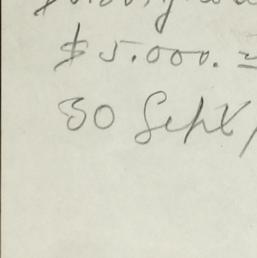 $5.000.=
30 Sept/